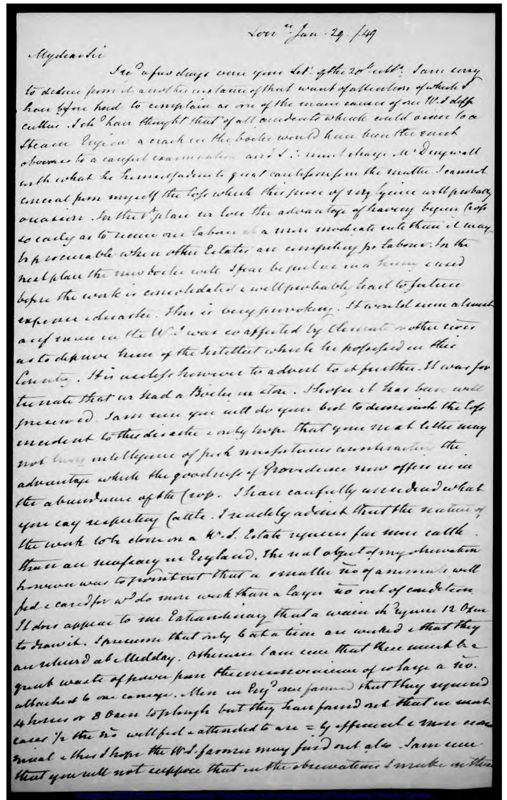 Lon.ⁿ Jan. 29. /49
My dear Sir
I rec.ᵈ a few days since your Let.ʳ of the 20ᵗʰ ult.ᵒ. I am sorry
to deduce from it another instance of that want of attention of which I
have before had to complain as one of the main causes of our W.I. diffi
culties. I sh.ᵈ have thought that of all accidents which could occur to a
Steam Engine a crack in the boiler would have been the most
obvious to a careful examination and I must charge M.ʳ Dingwall
with what he himself admits great carelessness in the matter. I cannot
conceal from myself the loss which this piece of negligence will probably
occasion. In the 1ˢᵗ place we lose the advantage of having begun Crop
so early as to secure our labour at a more moderate rate than it may
be procurable when other Estates are competing for labour. In the
next place the new boiler will I fear be put in in a hurry & used
before the work is consolidated & will probably lead to future
expence & disaster. This is very provoking. It would seem almost
as if man in the W.I. was so affected by Climate or other causes
as to deprive him of the Intellect which he possessed in this
Country. It is useless however to advert to it further. It was for
tunate that we had a Boiler in store. I hope it has been well
preserved. I am sure you will do your best to diminish the loss
incident to this disaster & only hope that your next letter may
not bring intelligence of fresh misfortunes counteracting the
advantage which the goodness of Providence now offers us in
the abundance of the Crop. I have carefully considered what
you say respecting Cattle. I readily admit that the nature of
the work to be done on a W.I. Estate requires far more cattle
than are necessary in England. The real object of my observation
however was to point out that a smaller no of animals well
fed & cared for w.ᵈ do more work than a larger no out of condition.
It does appear to me Extraordinary that a wain sh.ᵈ require 12 Oxen
to draw it. I presume that only 6 at a time are worked & that they
are relieved at Midday. Otherwise I am sure that there must be a
great waste of power from the inconvenience of so large a no.
attached to one carriage. Men in Eng.ᵈ once fancied that they required
4 horses or 8 Oxen to plough but they have found out that in most
cases ½ the no well fed & attended to are = ly efficient & more econo
mical & this I hope the W.I. farmers may find out also. I am sure
that you will not suppose that in the observations I make on these